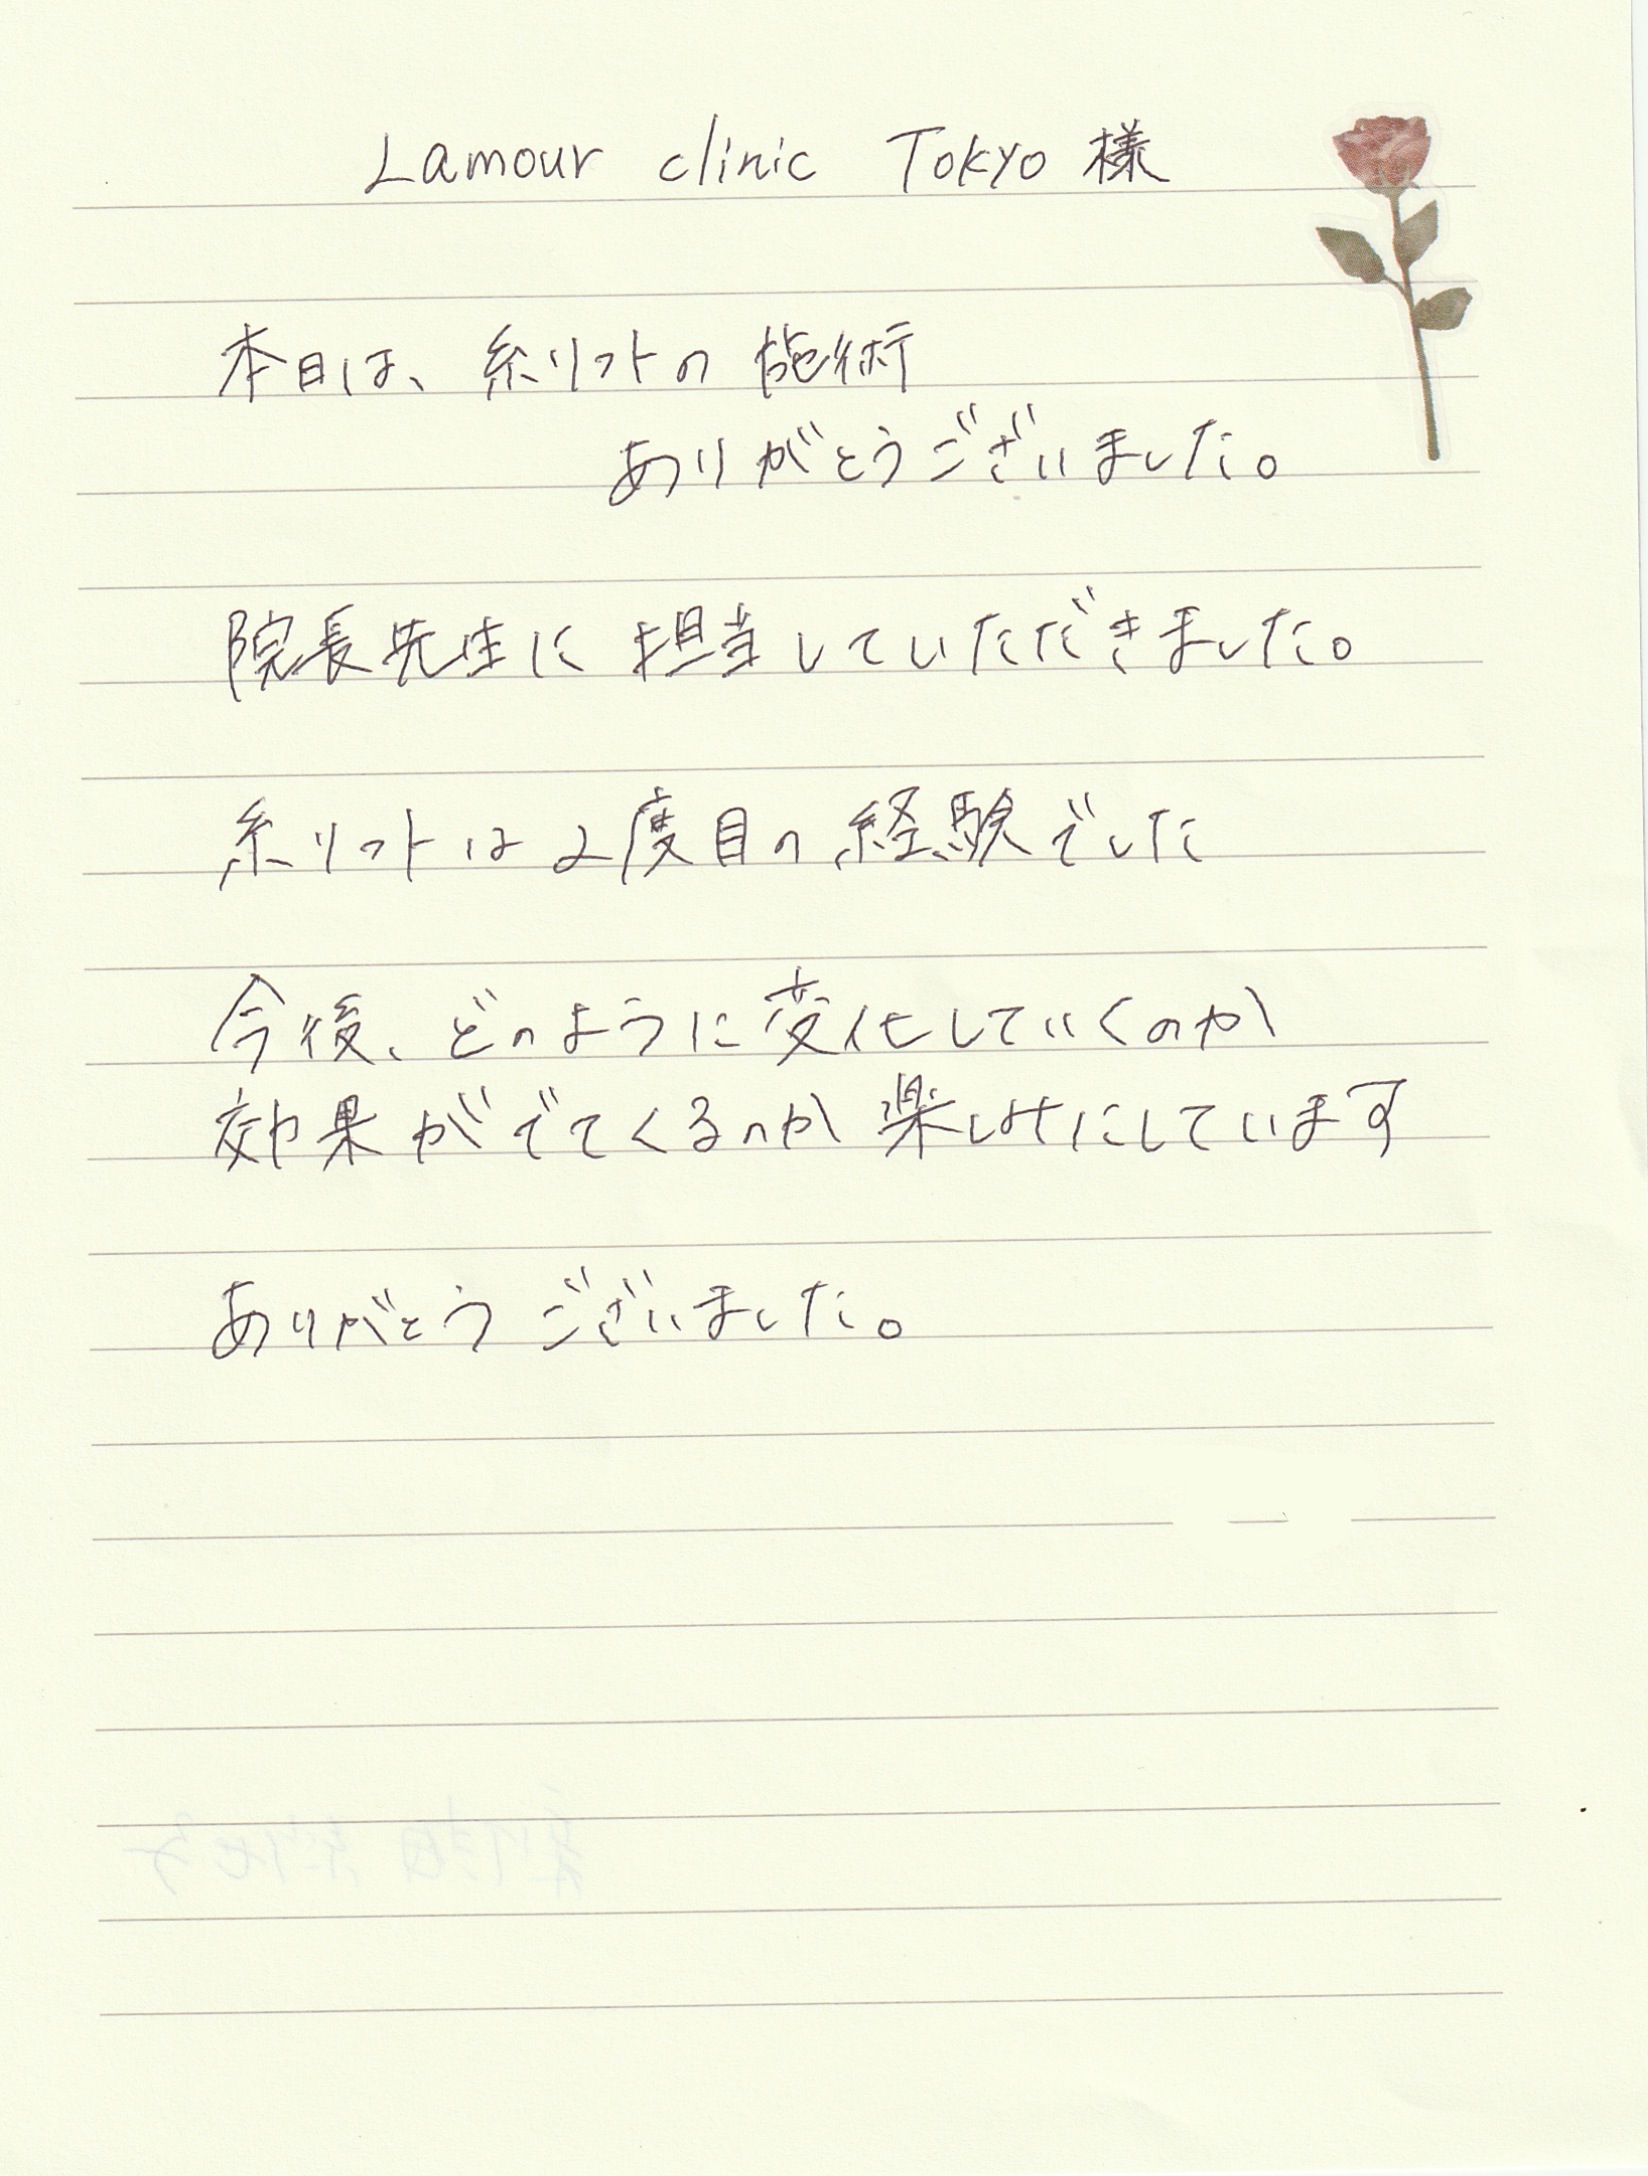 Lamour clinic Tokyo 様
本日は、糸リフトの施術
ありがとうございました。
院長先生に担当していただきました。
糸リフトは2度目の経験でした
今後、どのように変化していくのか
効果がでてくるのか楽しみにしています
ありがとうございました。